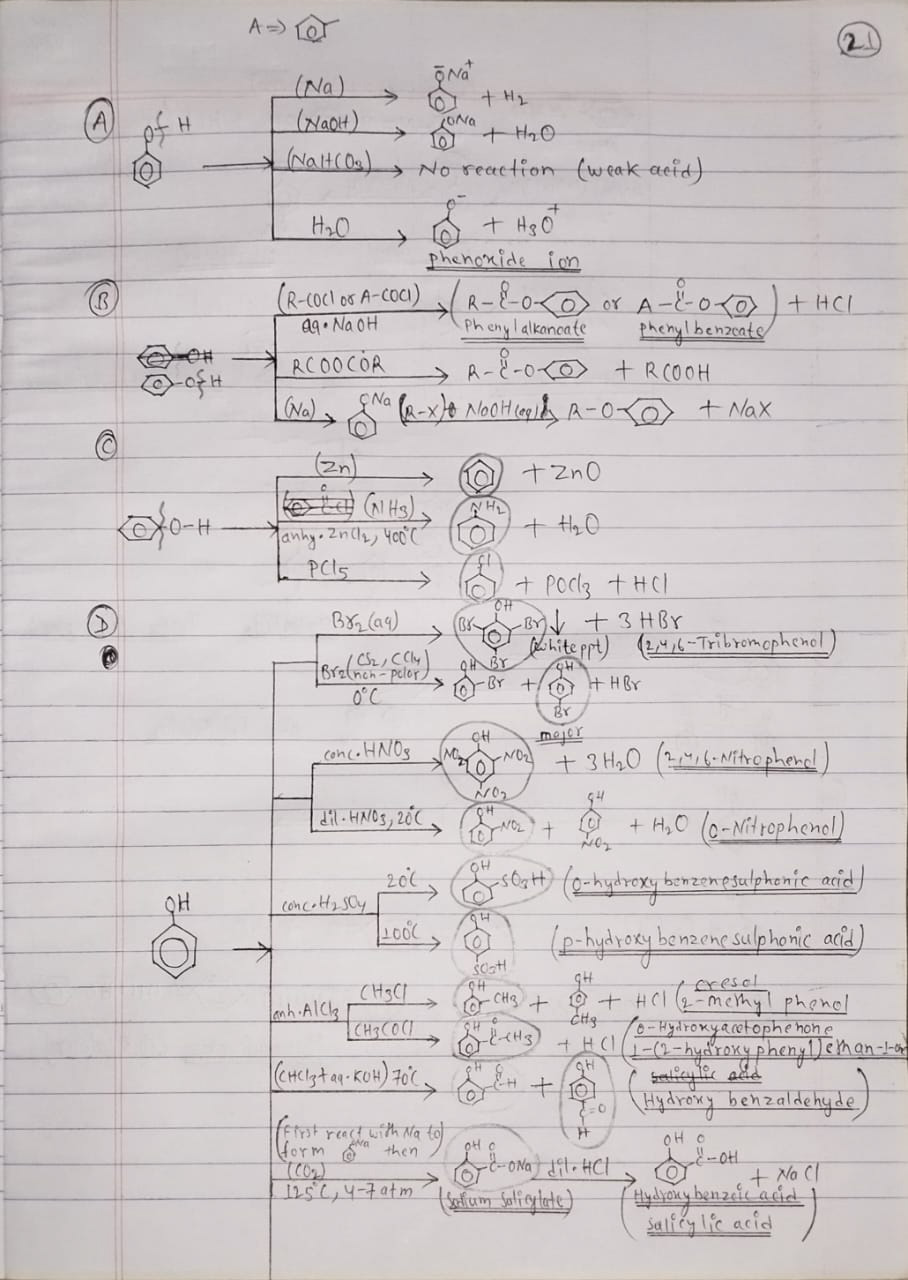 A ⇒
21
(A)
O H
(Na) → ŌNa⁺ + H2
(NaOH) → ONa + H2O
(NaHCO3) → No reaction (weak acid)
H2O → O⁻ + H3O⁺
phenoxide ion
(B)
(R-COCl or A-COCl) → (R-C-O- or A-C-O-) + HCl
O O
aq. NaOH
Phenyl alkanoate phenyl benzoate
-OH
-O H
RCOOCOR → R-C-O- + RCOOH
O
(Na) → ONa (R-X) NaOH(aq) → R-O- + NaX
(C)
O-H
(Zn) → + ZnO
(NH3) → NH2 + H2O
anhy. ZnCl2, 400°C
PCl5 → Cl + POCl3 + HCl
(D)
Br2(aq) → OH Br Br Br ↓ + 3HBr
(white ppt) (2,4,6-Tribromophenol)
Br2 (CS2, CCl4 non-polar) → OH -Br + OH Br + HBr
0°C
major
conc. HNO3 → OH NO2 -NO2 NO2 + 3H2O (2,4,6-Nitrophenol)
dil. HNO3, 20°C → OH -NO2 + OH NO2 + H2O (o-Nitrophenol)
OH
conc. H2SO4
20°C → OH -SO3H (o-hydroxy benzenesulphonic acid)
100°C → OH SO3H (p-hydroxy benzene sulphonic acid)
anh. AlCl3
CH3Cl → OH -CH3 + OH CH3 + HCl (cresol
2-methyl phenol
CH3COCl → OH O -C-CH3 + HCl (o-Hydroxyacetophenone
1-(2-hydroxyphenyl)ethan-1-on
(CHCl3 + aq. KOH) 70°C → OH O -C-H + OH C=O H
(salicylic acid
Hydroxy benzaldehyde)
(First react with Na to
form ONa then
(CO2)
125°C, 4-7 atm → OH O -C-ONa dil. HCl → OH O C-OH + NaCl
(Sodium Salicylate) (Hydroxybenzoic acid
salicylic acid)